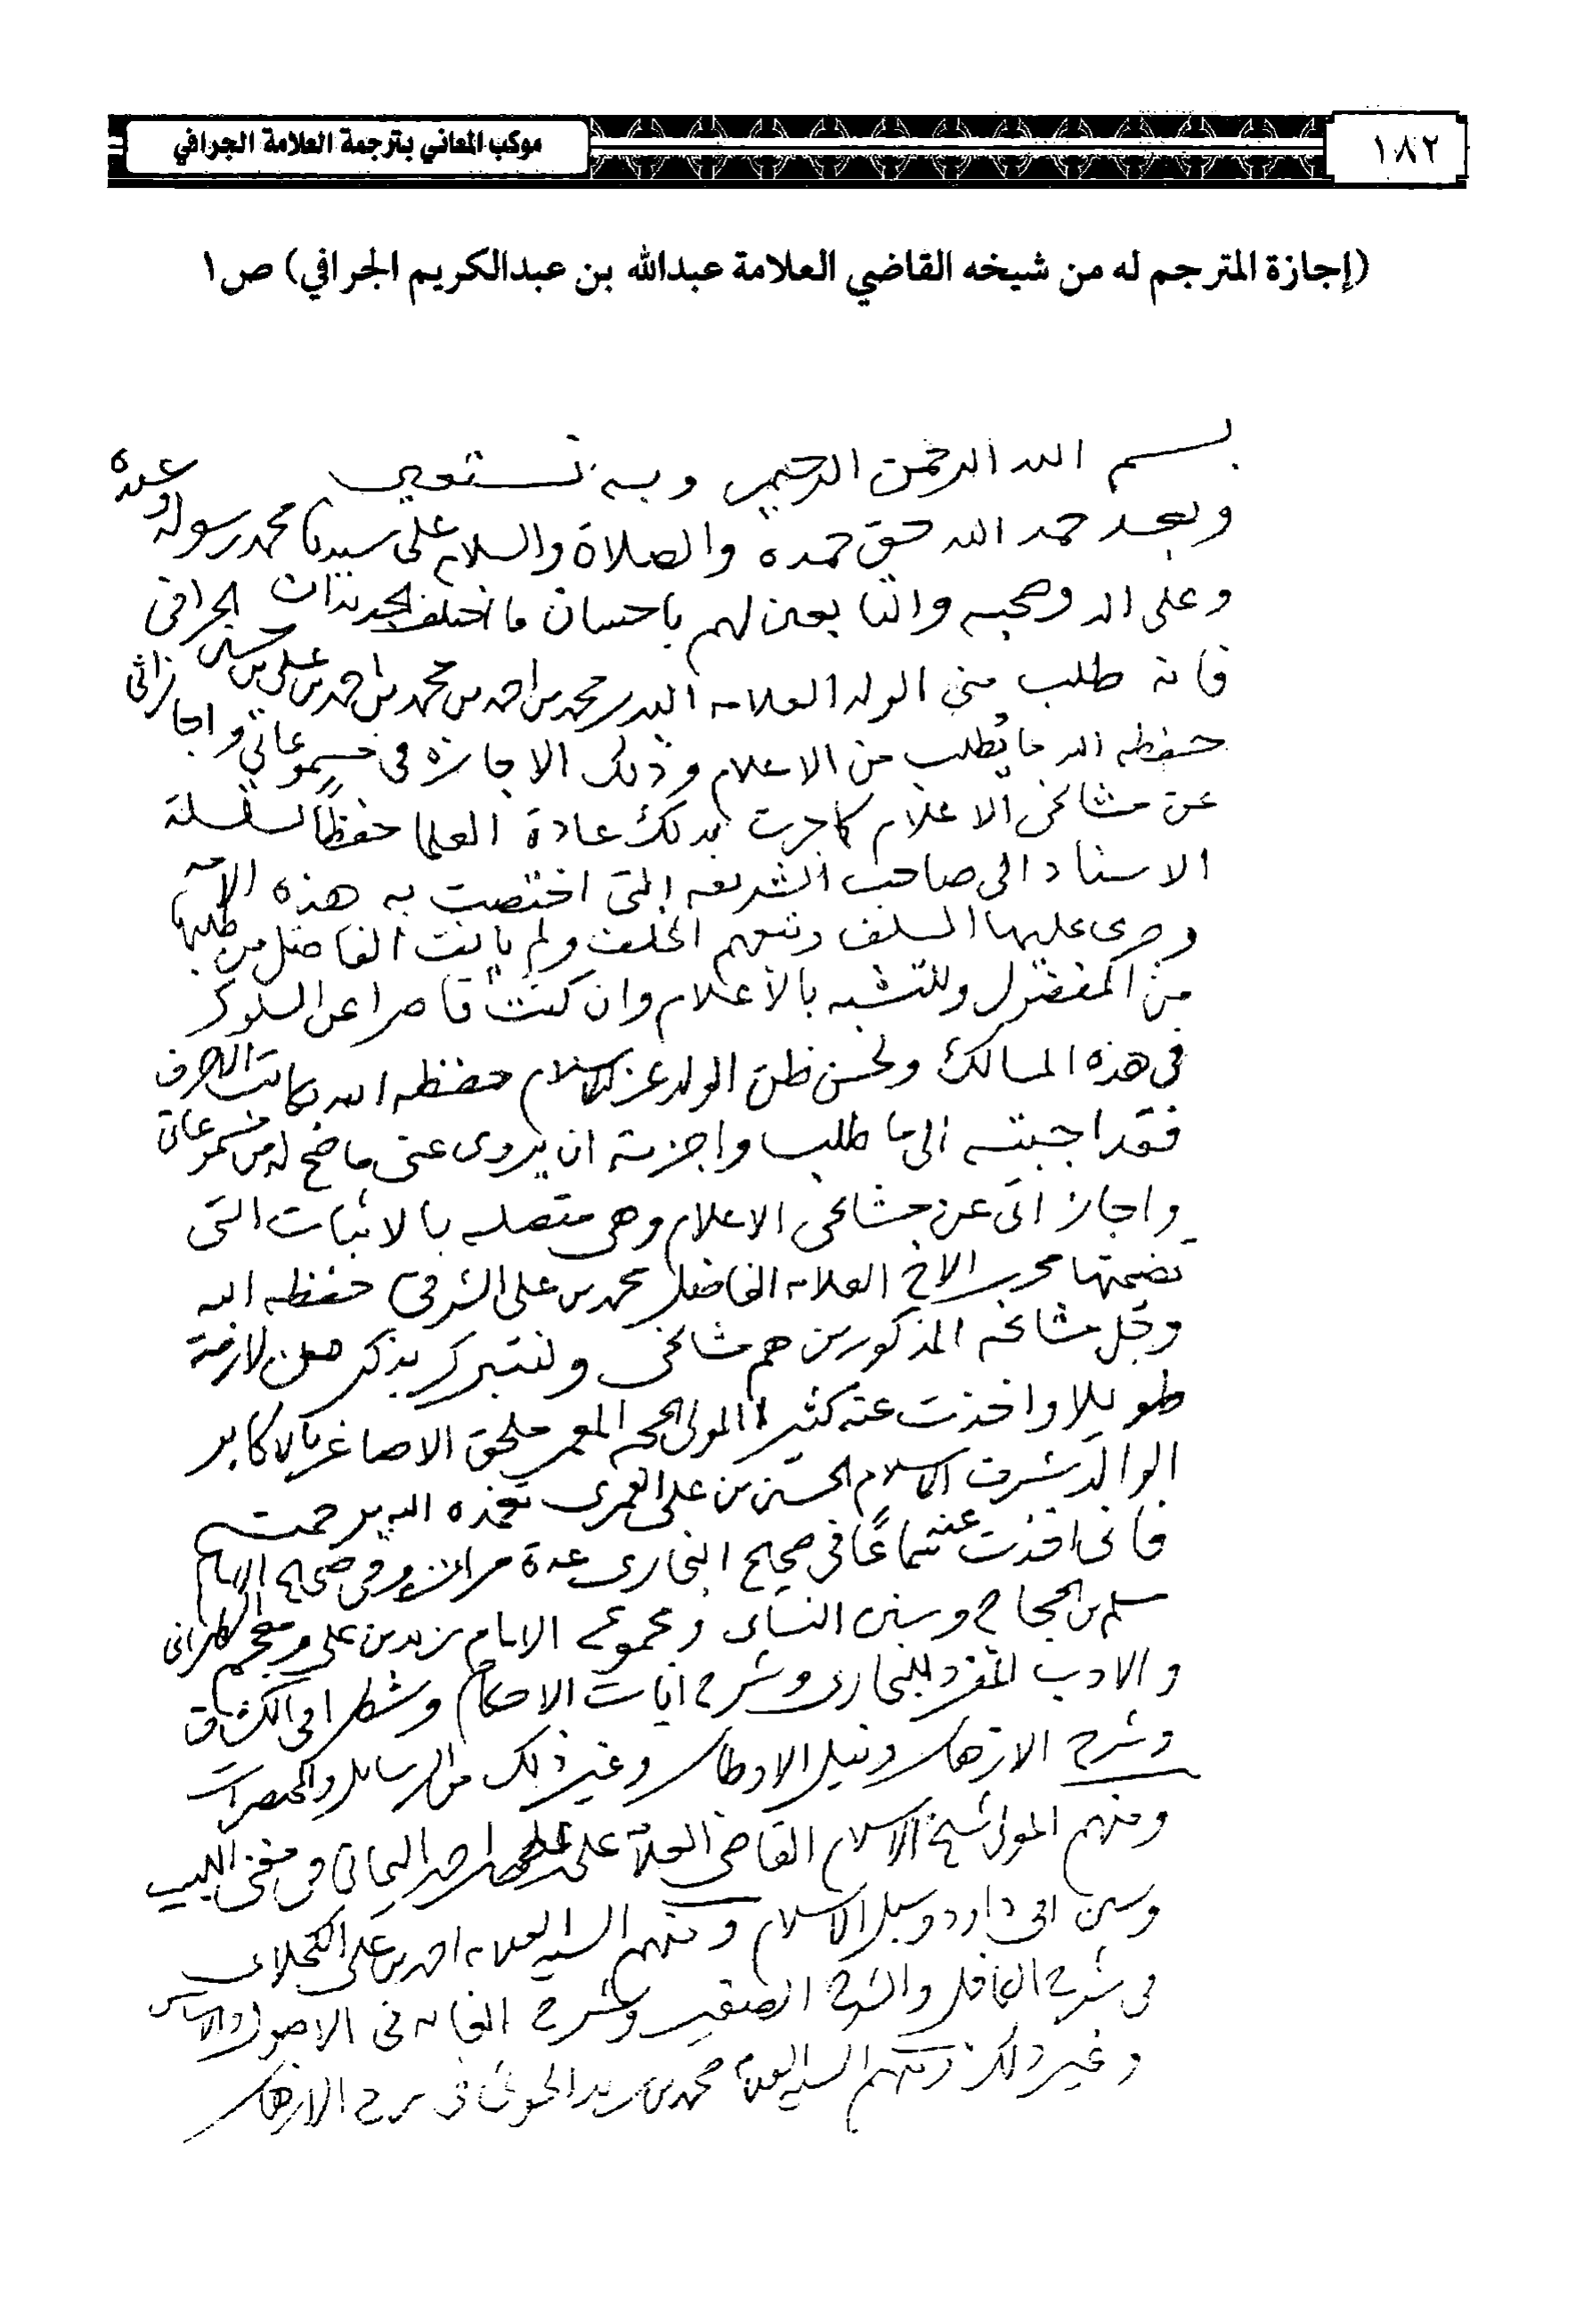 ١٨٢
موكب المعاني بترجمة العلامة الجرافي
(إجازة المترجم له من شيخه القاضي العلامة عبدالله بن عبدالكريم الجرافي) ص١
بسم الله الرحمن الرحيم وبه نستعين
وبعد حمد الله حق حمده والصلاة والسلام على سيدنا محمد رسوله وعبده
وعلى اله وصحبه والتابعين لهم باحسان ما اختلف الجديدان
فانه طلب مني الولد العلامه البدر محمد بن احمد بن محمد بن احمد بن علي بن حسين الجرافي
حفظه الله ما يُطلب من الاعلام وذلك الاجازة في مسموعاتي واجازاتي
عن مشائخي الاعلام كما جرت بذلك عادة العلما حفظاً لسلسلة
الاسناد الى صاحب الشريعه التي اختصت به هذه الامه
وجرى عليها السلف وتبعهم الخلف ولم يأنف الفاضل من طلبها
من المفضول وللتشبه بالأعلام وان كنت قاصرا عن السلوك
في هذه المسالك ولحسن ظن الولد عز الاسلام حفظه الله بكاتب الاحرف
فقد اجبته الى ما طلب واجزته ان يروى عنى ما صح له من مسموعاتي
واجازاتى عن مشائخى الاعلام وهى متصله بالاثبات التى
تضمنتها الاخ العلامه الفاضل محمد بن على الشرفي حفظه الله
وجُل مشائخه المذكورين هم مشائخى ولنتبرك بذكر من لازمته
طويلا واخذت عنه كثيرا المولى الحجه المعمر ملحق الاصاغر بالاكابر
الوالد شرف الاسلام الحسين بن على العمرى تغمده الله برحمته
فانى اخذت عنه سماعًا في صحيح البخارى عدة مرات وفى صحيح الامام
مسلم بن الحجاج وسنن النسائى ومجموع الامام زيد بن على ومعجم الطبرانى
والادب المفرد للبخارى وشرح ايات الاحكام وشطرا فى الكشاف
وشرح الازهار ونيل الاوطار وغير ذلك من الرسايل والمختصرات
ومنهم المولى شيخ الاسلام القاضي العلامة على اليمانى في مغنى اللبيب
وسنن ابى داود وسبل الاسلام ومنهم السيد العلامه احمد بن على الكحلانى
فى شرح الكافل والشرح الصغير وشرح الغايه فى الاصول والاساس
وغير ذلك ومنهم السيد العلامة محمد بن زيد الحوثى فى شرح الازهار